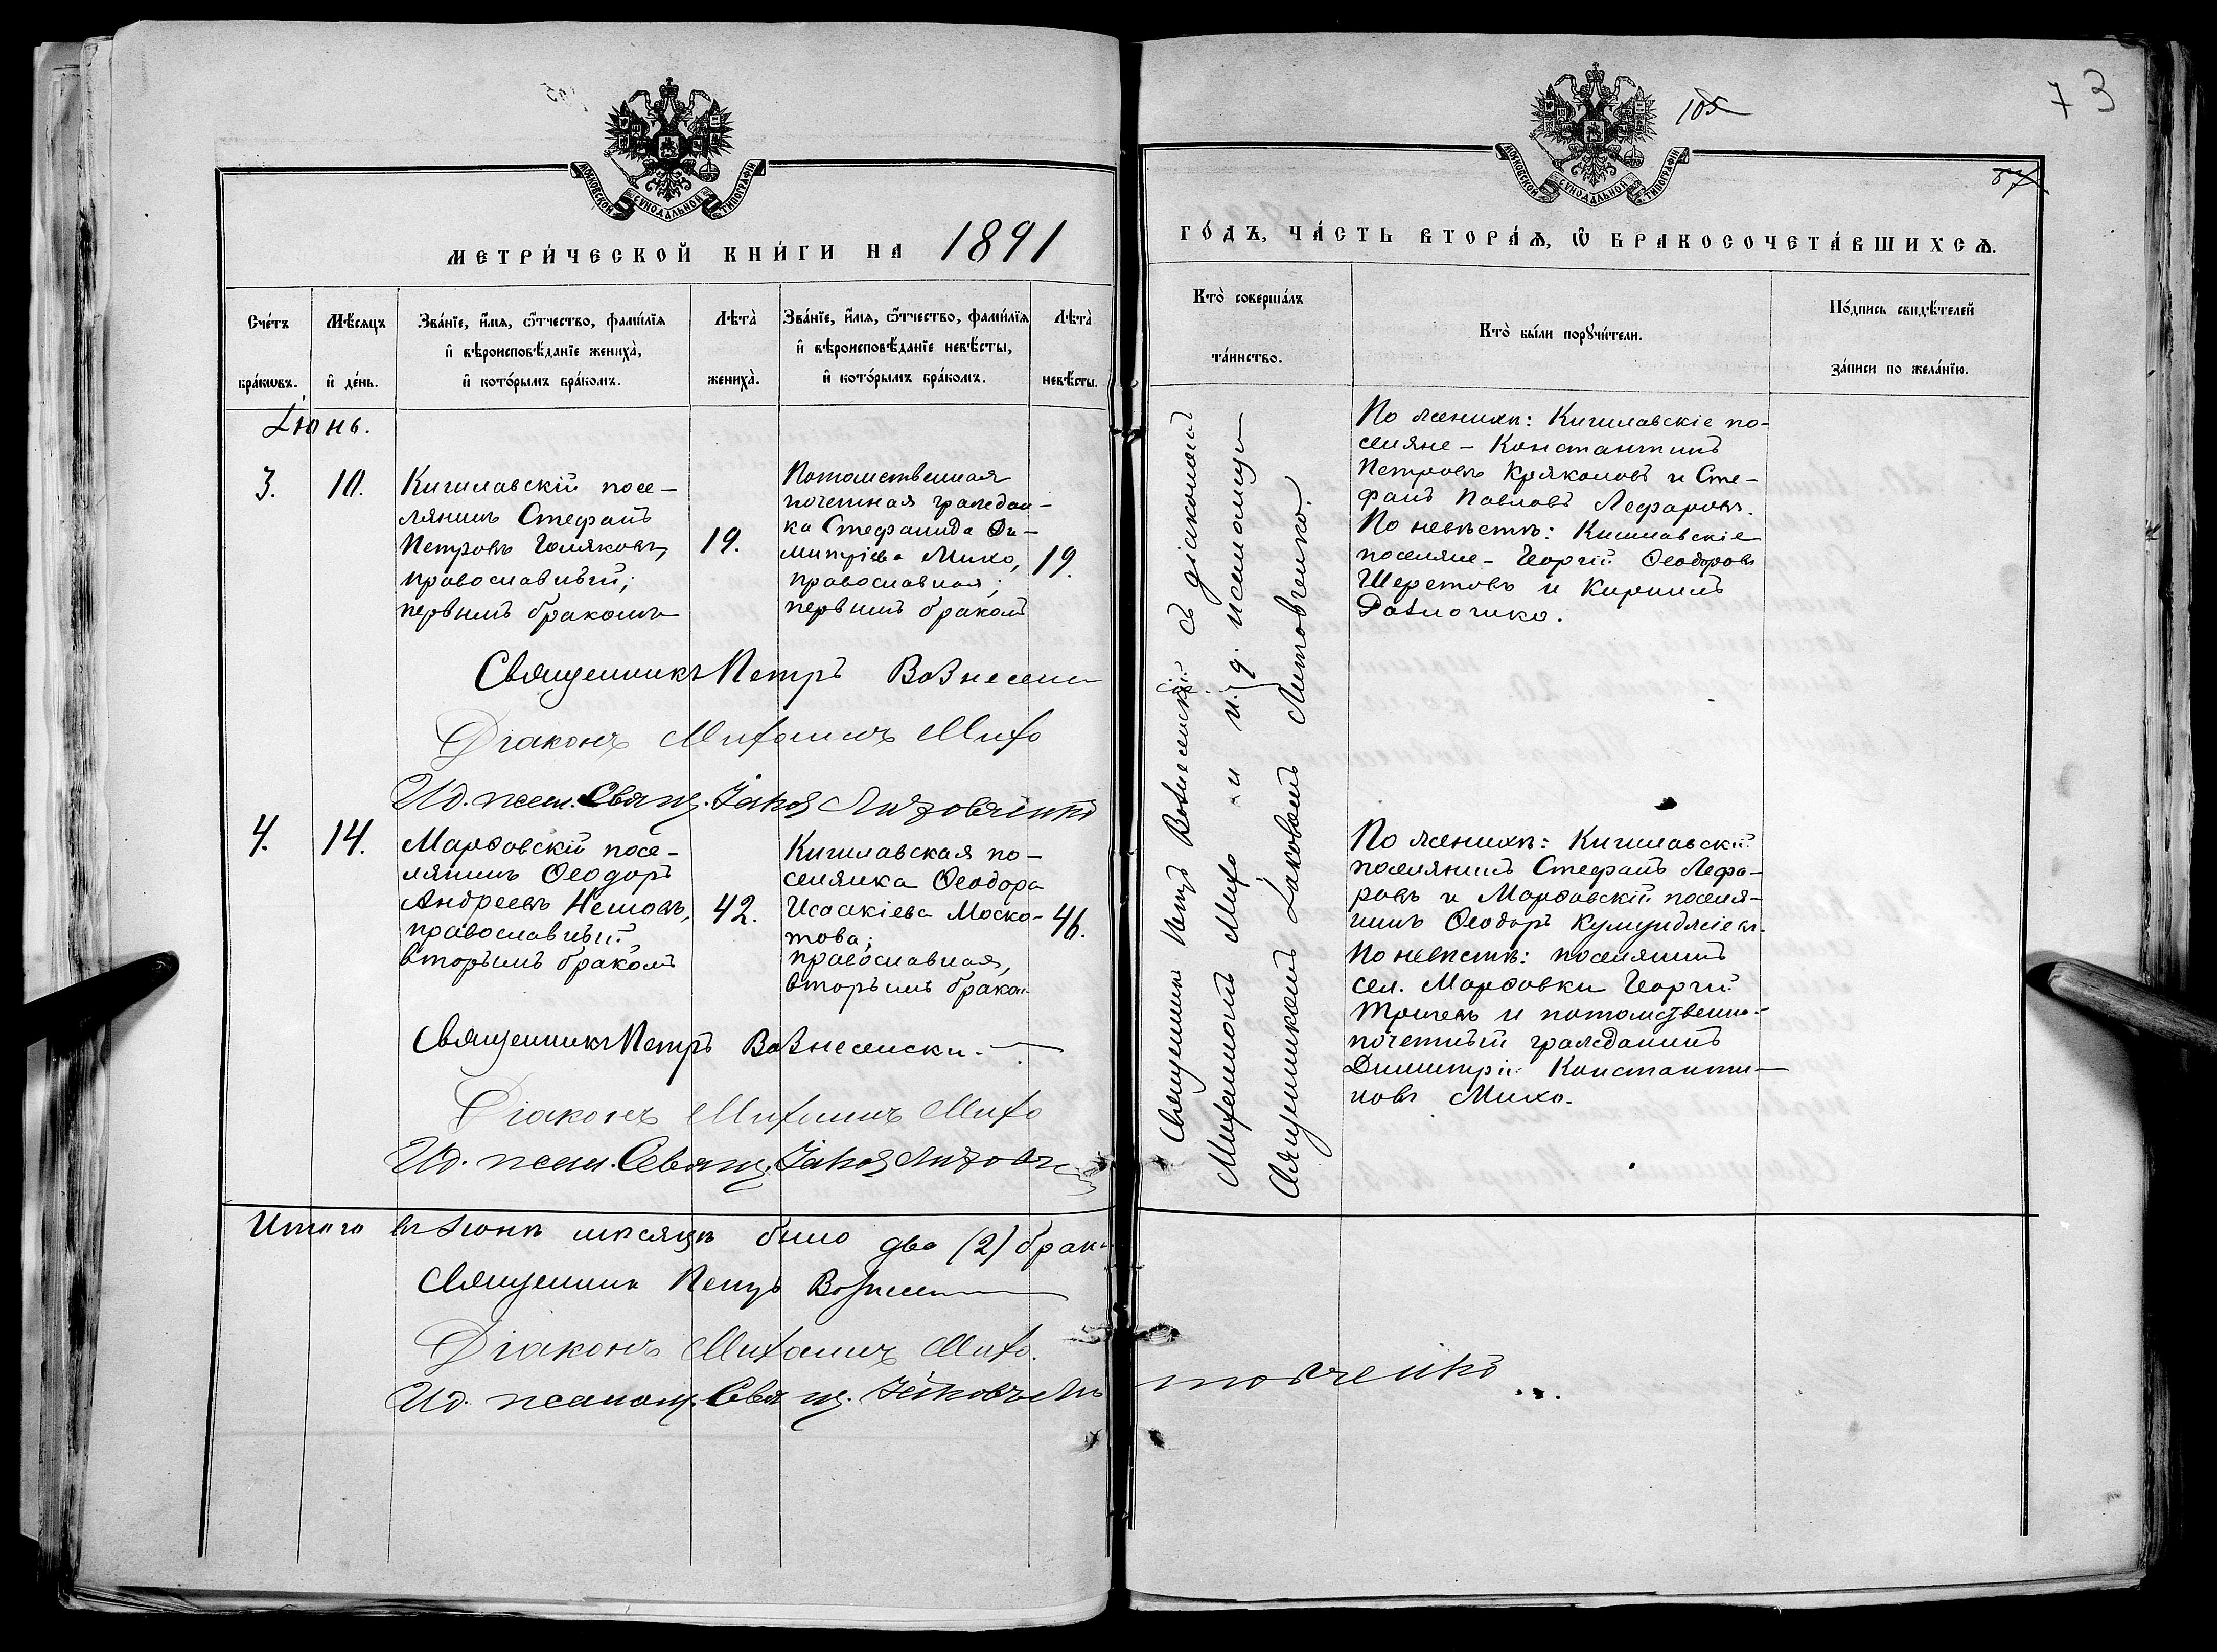 МОСКОВСКОЙ СѴНОДАЛЬНОЙ ТИПОГРАФІИ
МЕТРИ́ЧЕСКОЙ КНИ́ГИ НА 1891
Сче́тъ бра́кѡвъ.
Мѣ́сяцъ и҆ де́нь.
Зва́нїе, и҆́мя, ѻ҆́тчество, фами́лїя
и҆ вѣроисповѣ́данїе жениха̀,
и҆ кото́рымъ бра́комъ.
Лѣта̀ жениха̀.
Зва́нїе, и҆́мя, ѻ҆́тчество, фами́лїя
и҆ вѣроисповѣ́данїе невѣ́сты,
и҆ кото́рымъ бра́комъ.
Лѣта̀ невѣ́сты.
Іюнь.
3.
10.
Кигилавскій посе-
лянинъ Стефанъ
Петровъ Голяковъ,
православный;
первымъ бракомъ
19.
Потомственная
почетная граждан-
ка Стефанида Ди-
митріева Михо,
православная;
первымъ бракомъ
19.
Священникъ Петръ Вознесенс
Діаконъ Михаилъ Михо
И.д. псал. Свящ. Іаковъ Литовченко
4.
14.
Марзовскій посе-
лянинъ Ѳеодоръ
Андреевъ Нешовъ,
православный,
вторымъ бракомъ
42.
Кигилавская по-
селянка Ѳеодора
Исаакіева Моско-
това;
православная,
вторымъ браком
46.
Священникъ Петръ Вознесенскій
Діаконъ Михаилъ Михо
И.д. псал. Свящ. Іаковъ Литовч
Итого въ Іюнѣ мѣсяцѣ было два (2) брака
Священникъ Петръ Вознесен
Діаконъ Михаилъ Михо.
И.д. псалом. Свящ. Іаковъ Ли
товченко
105
73
МОСКОВСКОЙ СѴНОДАЛЬНОЙ ТИПОГРАФІИ
ГО́ДЪ, ЧА́СТЬ ВТОРА́Ѧ, Ѽ БРАКОСОЧЕТА́ВШИХСѦ.
Кто̀ соверша́лъ
та́инство.
Кто̀ бы́ли порꙋчи́тели.
По́дпись свидѣ́телей
за́писи по жела́нїю.
Священникъ Петръ Вознесенскій съ діакономъ
Михаиломъ Михо и и. д. псаломщи
Священникомъ Іаковомъ Литовченко.
По женихѣ: Кигилавскіе по-
селяне - Константинъ
Петровъ Кряколовъ и Сте-
фанъ Павловъ Лефаровъ.
По невѣстѣ: Кигилавскіе
поселяне - Георгій Ѳеодоровъ
Шеретовъ и Кириллъ
По женихѣ: Кигилавскій
поселянинъ Стефанъ Лефа-
ровъ и Марзовскій поселя-
нинъ Ѳеодоръ Кумунджіевъ.
По невѣстѣ: поселянинъ
сел. Марзовки Георгій
и потомственно-
почетный гражданинъ
Димитрій Константи-
новъ Михо.